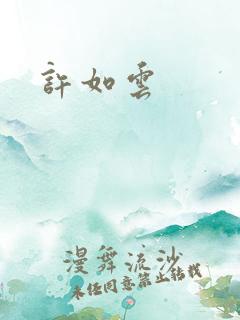 許如雲
漫舞流沙
未經同意禁止轉載